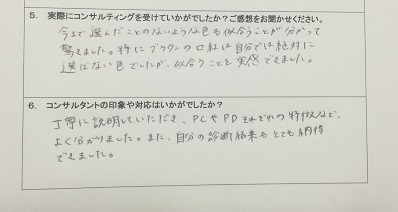 5. 実際にコンサルティングを受けていかがでしたか？ご感想をお聞かせください。
今まで選んだことのないような色も似合うことが分かって
驚きました。特にブラウンの口紅は自分では絶対に
選ばない色でしたが、似合うことを実感できました。
6. コンサルタントの印象や対応はいかがでしたか？
丁寧に説明していただき、PCやPDそれぞれの特徴など、
よく分かりました。また、自分の診断結果もとても納得
できました。